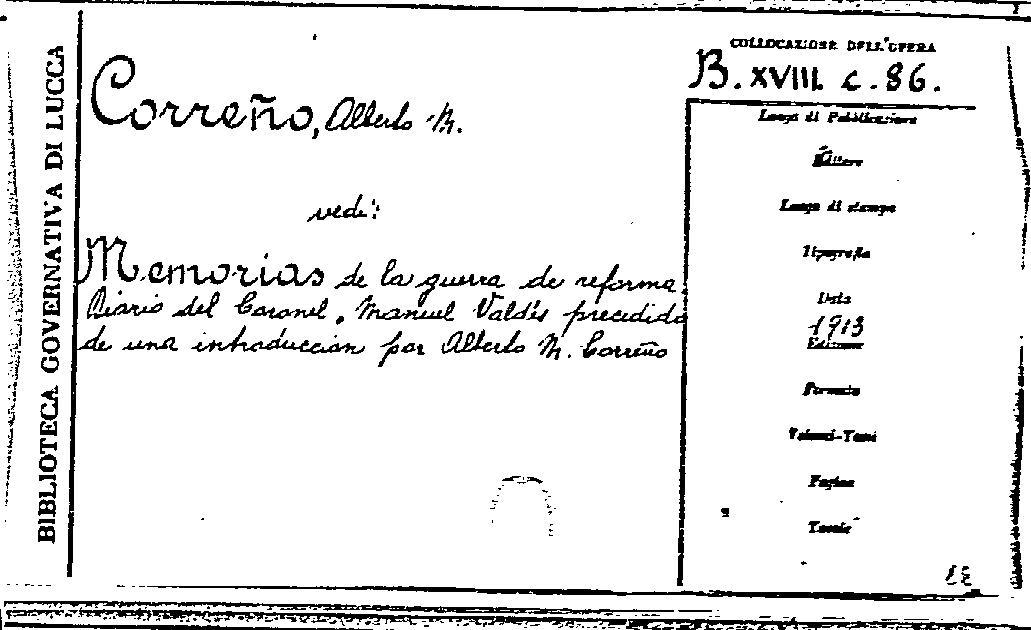 BIBLIOTECA GOVERNATIVA DI LUCCA
Correño, Alberto M.
vedi:
Memorias de la guerra de reforma.
Diario del Coronel. Manuel Valdés precedido
de una introduccion por Alberto M. Correño
COLLOCAZIONE DELL'OPERA
B. XVIII. c. 86.
Luogo di Pubblicazione
Editore
Luogo di stampa
Tipografia
Data
1913
Edizione
Formato
Volumi-Tomi
Pagine
Tavole